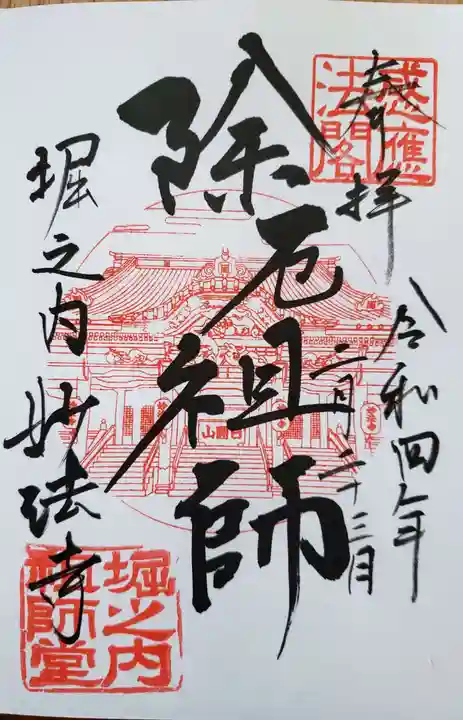 奉拝
令和四年
二月二十三日
除厄祖師
堀之内妙法寺
感應
法閣
堀之内
祖師堂
日圓山